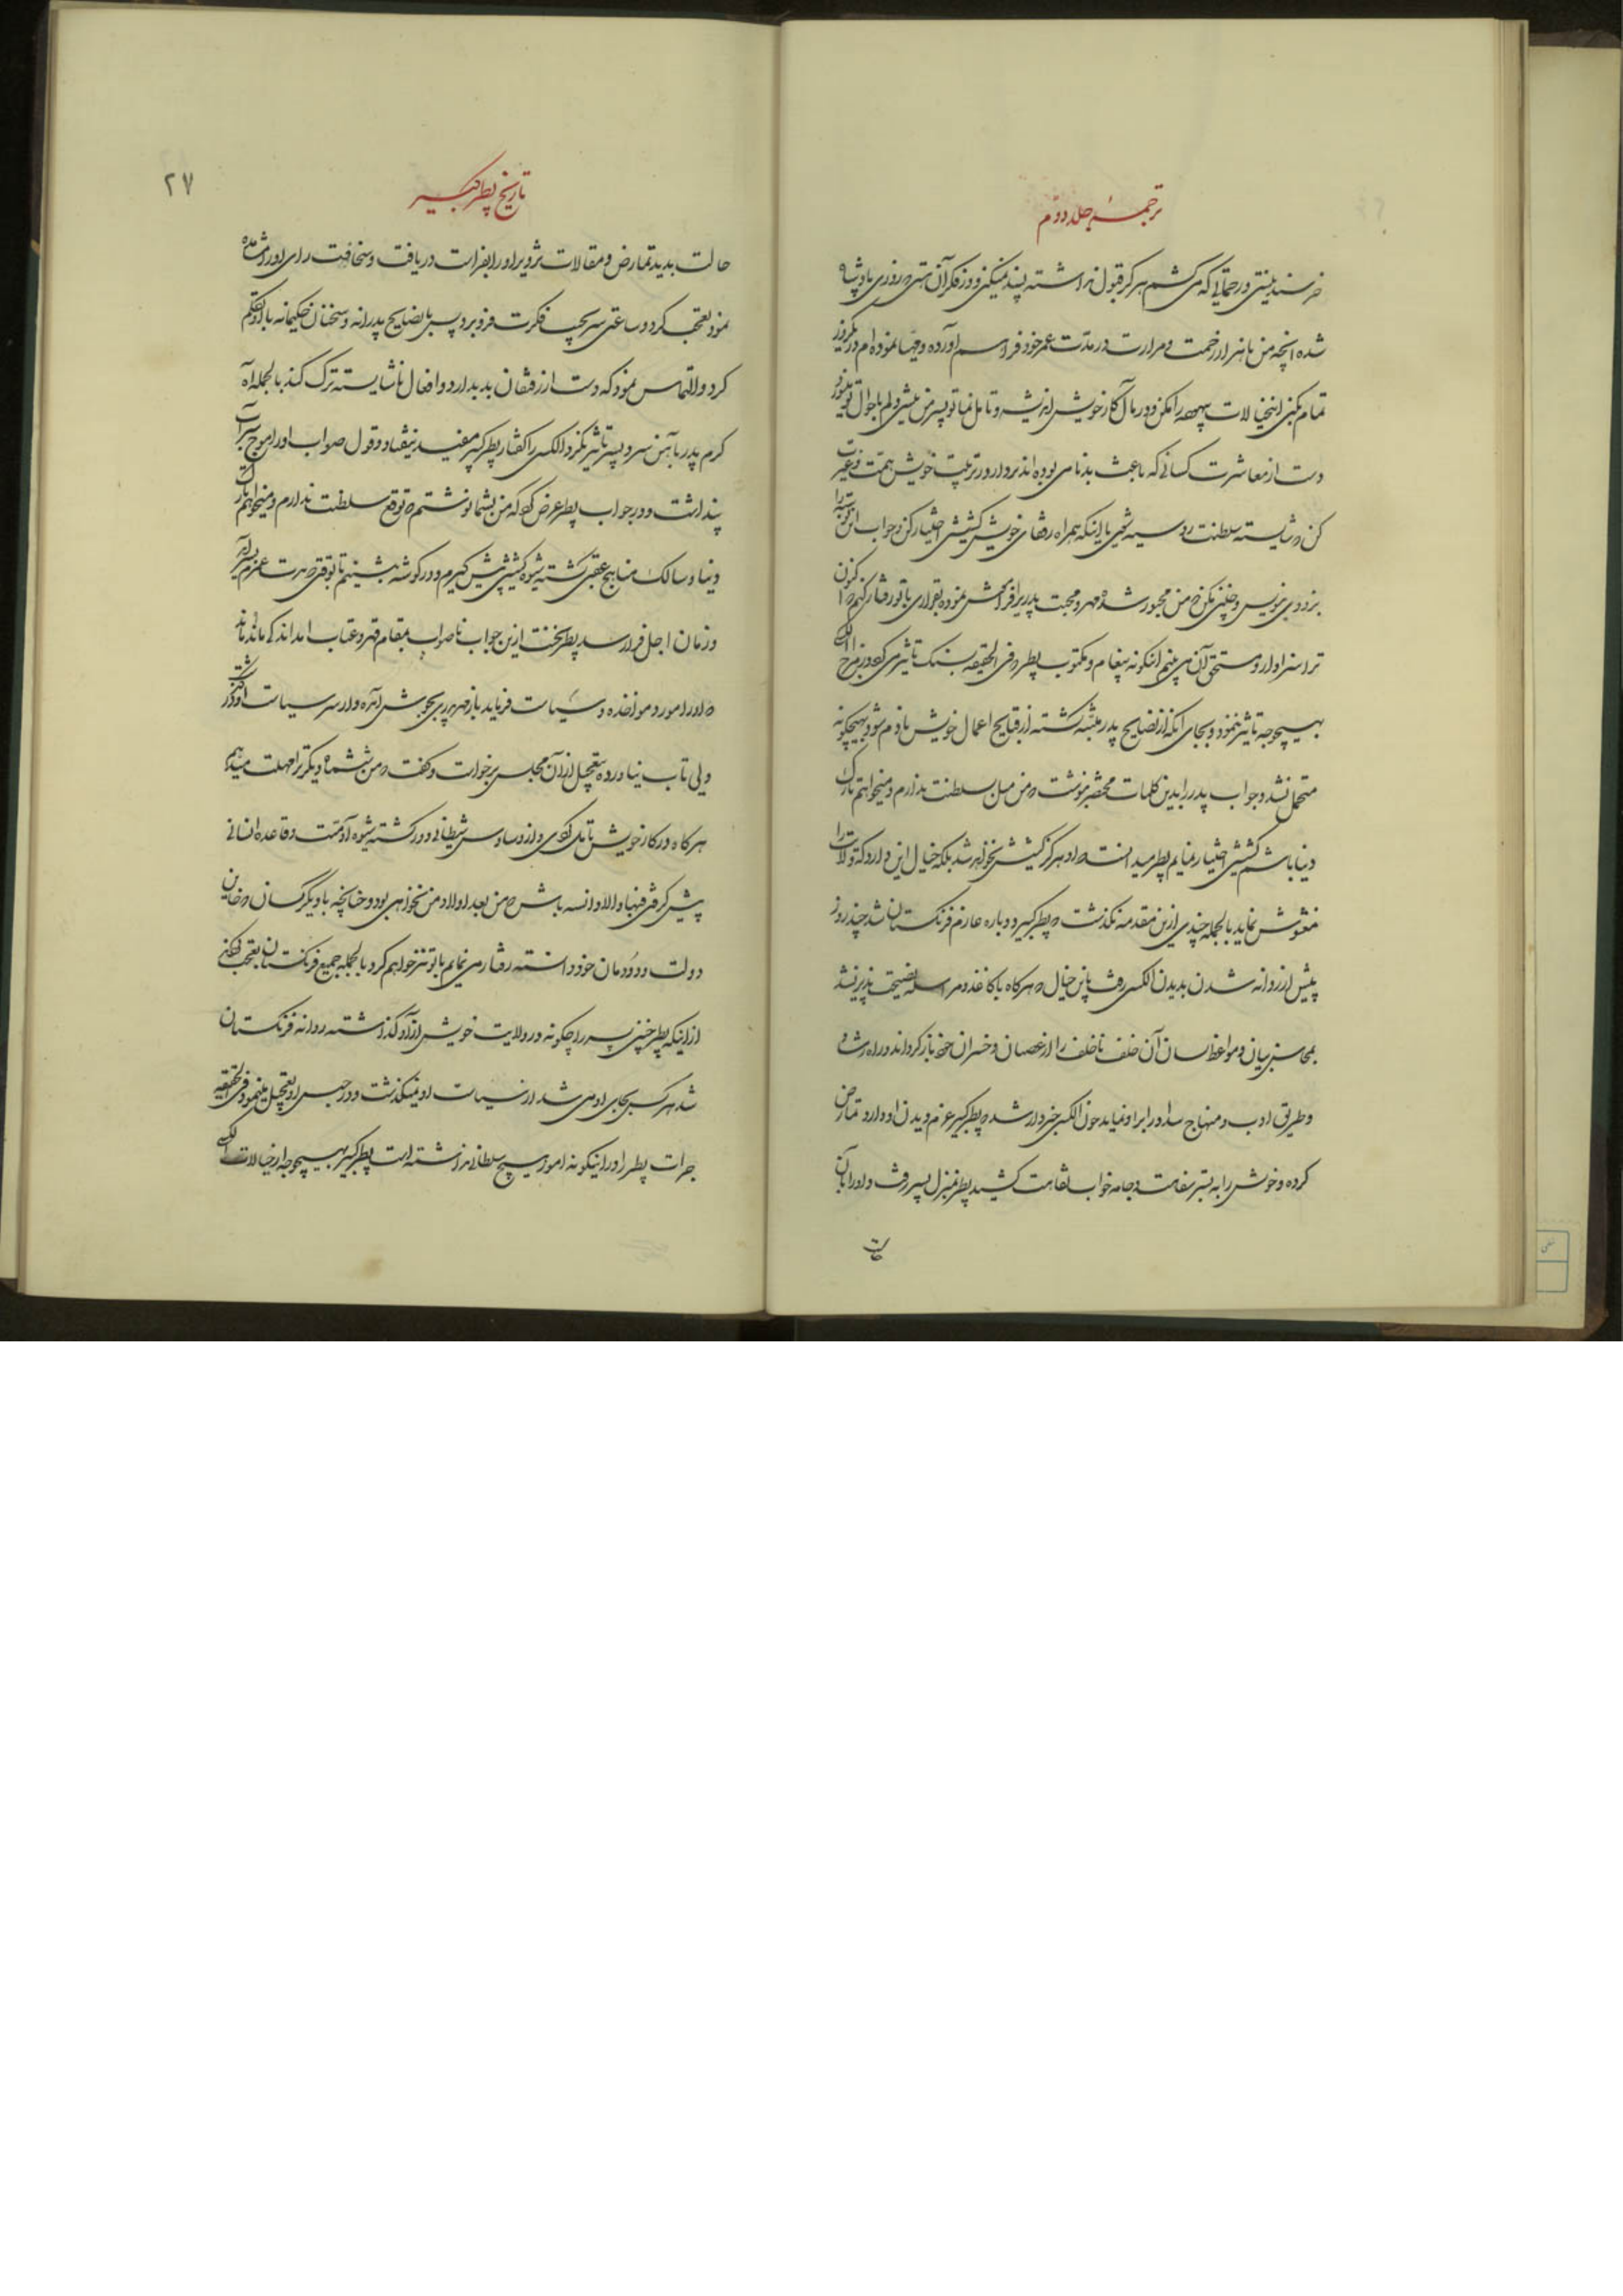 ترجمهٔ جلد دوم
خرسند نیستی و رحمتهائی که می کشم هرگز قبول نداشته پسند نمیکنی و در فکر آن هستی که روزی پادشاه
شده آنچه من با هزار زحمت و مرارت در مدت عمر خود فراهم آورده و مهیا نموده ام در یکروز
تمام بکنی این خیالات بیهوده را مکن و در مآل کار خویش اندیشه و تامل نما تو پسر من هستی و دلم باحوال تو میسوزد
دست از معاشرت کسانی که باعث بدنامی بوده اند بردار و در تربیت خویش همت و غیرت
کن که شایسته سلطنت روسیه شوی یا اینکه همراه رفقای خویش کشیشی اختیار کن و جواب این نوشته را
بزودی بنویس و چنین مکن که من مجبور شده مهر و محبت پدری را فراموش نموده بقراری با تو رفتار کنم که اکنون
ترا سزاوار و مستحق آن می بینم اینگونه پیغام و مکتوب پطر که فی الحقیقه بسنگ تاثیر می کرد در مزاج الکسی
بهیچوجه تاثیر ننمود و بجای آنکه از نصایح پدر متنبه گشته از قبایح اعمال خویش نادم شود بهیچگونه
متحمل نشد و جواب پدر را بدین کلمات مختصر نوشت که من میل سلطنت ندارم و میخواهم تارک
دنیا باشم کشیشی اختیار نمایم پطر میدانست که او هرگز کشیش نخواهد شد بلکه خیال این دارد که ولایت را
مغشوش نماید بالجمله چندی ازین مقدمه نگذشت که پطر کبیر دوباره عازم فرنگستان شد چند روز
پیش از روانه شدن بدیدن الکسی رفت باین خیال که هرگاه با کاغذ و مراسله نصیحت پذیر نشد
بمحاسن بیان و مواعظ لسان آن خلف ناخلف را از عصیان و خسران خود بازگرداند و راه رشد
و طریق ادب و منهاج سداد را بر او نماید چون الکسی خبردار شد که پطر کبیر عزم دیدن او دارد تمارض
کرده و خویش را به بستر سقامت و جامه خواب نقاهت کشید پطر بمنزل پسر رفت و او را بآن
حالت
۲۷
تاریخ پطر کبیر
حالت بدید تمارض و مقالات تزویر او را بفراست دریافت و سخافت رای او را مشاهده
نمود تعجب کرد و ساعتی سر بجیب فکرت فرو برد و پس با نصایح پدرانه و سخنان حکیمانه با او تکلم
کرد و التماس نمود که دست از رفیقان بد بدارد و افعال ناشایسته ترک کند بالجمله آه
گرم پدر با آهن سرد پسر تاثیر نکرد الکسی را گفتار پطر کبیر مفید نیفتاد و قول صواب او را موج سراب
پنداشت و در جواب پطر عرض کرد که من بشما نوشتم که توقع سلطنت ندارم و میخواهم تارک
دنیا و سالک مناهج عقبی گشته شیوه کشیشی پیش گیرم و در گوشه بنشینم تا بوقتی که مدت عمرم بسر آید
و زمان اجل فرا رسد پطر سخت ازین جواب ناصواب بمقام قهر و عتاب آمد اندکی مانده بود
که او را مورد مواخذه و سیاست فرماید باز مهر پدری بجوش آمده و از سر سیاست او درگذشت
ولی تاب نیاورده بتعجیل از آن مجلس برخواست و گفت که من ششماه دیگر ترا مهلت میدهم
هرگاه در کار خویش تامل کردی و از وساوس شیطانی دور گشته شیوه آدمیت و قاعده انسانی
پیش گرفتی فبها و الا دانسته باش که من بعد اولاد من نخواهی بود و چنانچه با دیگر کسان که خاین
دولت و دودمان خود دانسته رفتار می نمایم با تو نیز خواهم کرد بالجمله جمیع فرنگستان تعجب کردند
از اینکه پطر چنین پسر را چگونه در ولایت خویش آزاد گذاشته روانه فرنگستان
شد هر کس بجای او می شد از سیاست او نمیگذشت و در حبس او تعجیل مینمود فی الحقیقه
جرات پطر را در اینگونه امور هیچ سلطانی نداشته است پطر کبیر بهیچوجه از خیالات الکسی